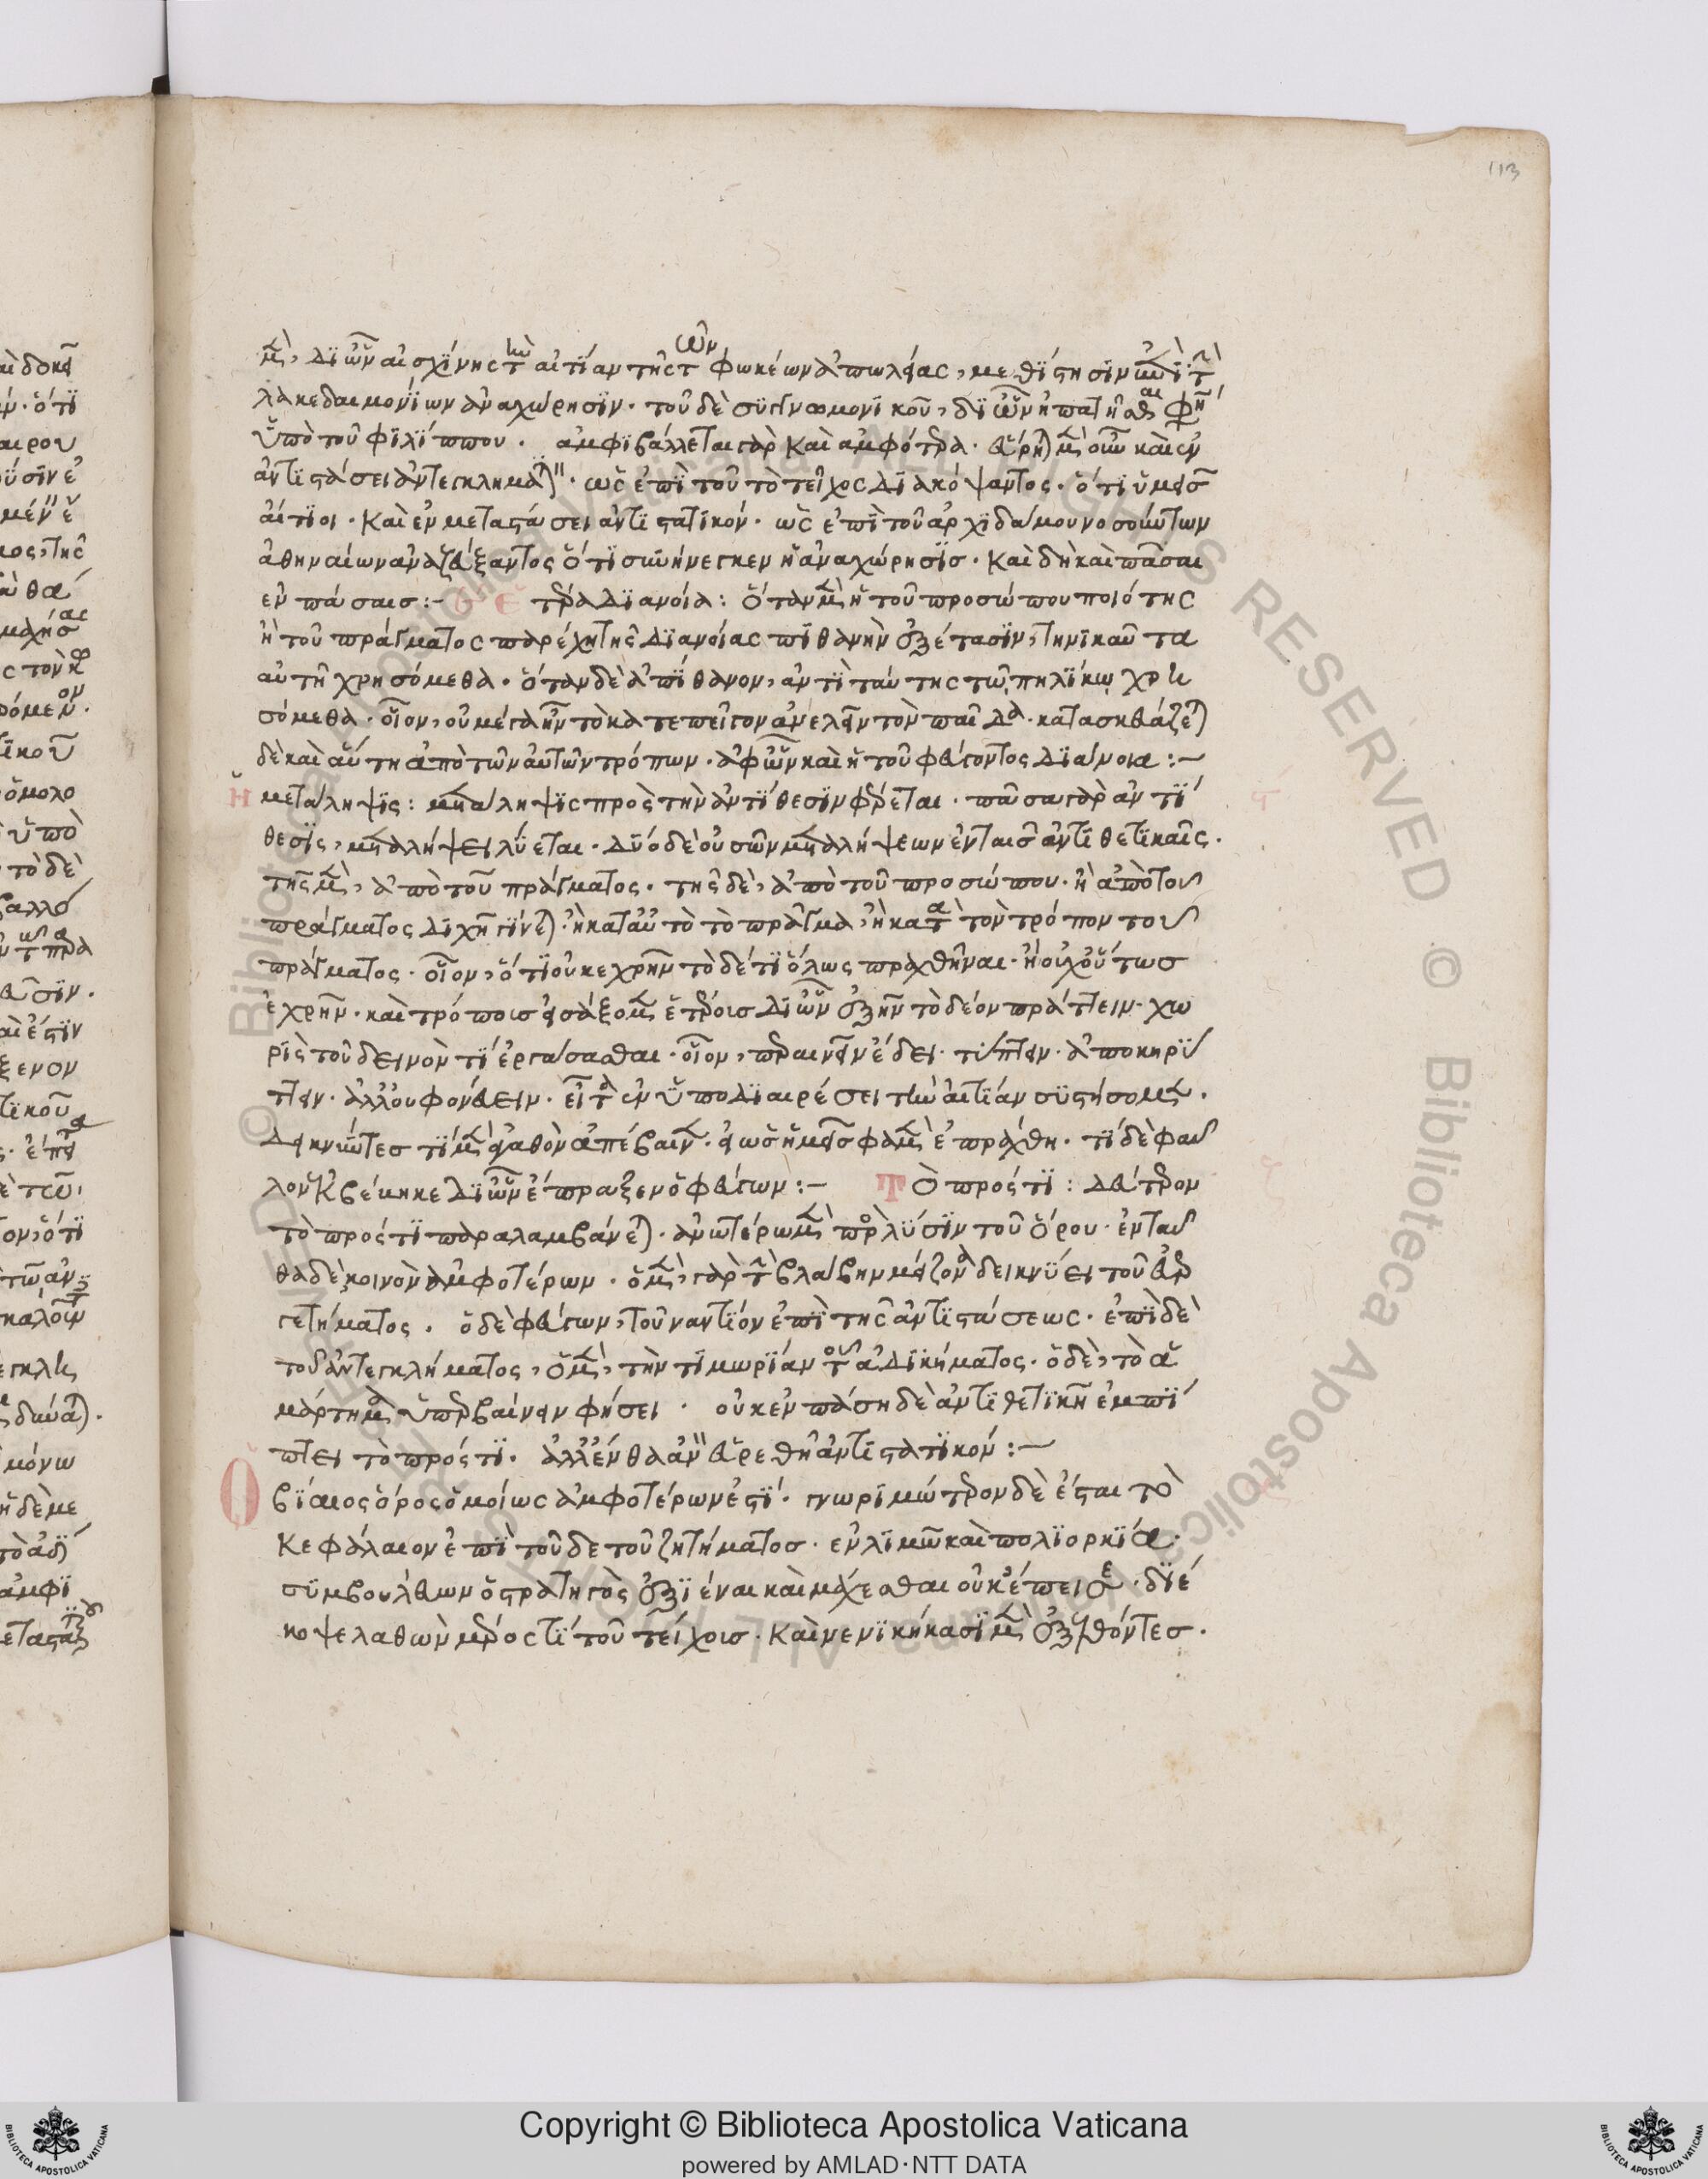 113
μὲν, δι' ὧν αἰσχίνης τὴν αἰτίαν τῆς τῶν φωκέων ἀπωλείας, μεθίστησιν ἐπὶ τὴν
λακεδαιμονίων ἀναχώρησιν. τοῦ δὲ συγγνωμονικοῦ, δι' ὧν ἠπατῆσθαι φησὶ
ὑπὸ τοῦ φιλίππου. ἀμφιβάλλεται γὰρ καὶ ἀμφότερα. εὕρηται μὲν οὖν καὶ ἐν
ἀντιστάσει ἀντεγκληματικόν. ὡς ἐπὶ τοῦ τὸ τεῖχος διακόψαντος. ὅτι ὑμεῖς
αἴτιοι. καὶ ἐν μεταστάσει ἀντιστατικόν. ὡς ἐπὶ τοῦ ἀρχιδάμου νοσούντων
ἀθηναίων ἀναζεύξαντος ὅτι συνήνεγκεν ἡ ἀναχώρησις. καὶ δὴ καὶ πᾶσαι
ἐν πάσαις :- ἑτέρα διανοία : ὅταν μὲν ἡ τοῦ προσώπου ποιότης
ἢ τοῦ πράγματος παρέχη τῆς διανοίας πιθανὴν ἐξέτασιν, τηνικαῦτα
αὐτῆ χρησόμεθα. ὅταν δὲ ἀπίθανον, ἀντὶ ταύτης τῶ πηλίκω χρη
σόμεθα. οἷον, οὐ μέγα ἦν τὸ κατεπεῖγον ἀνελεῖν τὸν παῖδα. κατασκευάζεται
δὲ καὶ αὕτη ἀπὸ τῶν αὐτῶν τρόπων. ἀφ' ὧν καὶ ἡ τοῦ φεύγοντος διάνοια :-
μετάληψις : μετάληψις πρὸς τὴν ἀντίθεσιν φέρεται. πᾶσα γὰρ ἀντί
θεσις, μεταλήψει λύεται. δύο δὲ οὐσῶν μεταλήψεων ἐν ταῖς ἀντιθετικαῖς.
τῆς μὲν, ἀπὸ τοῦ πράγματος. τῆς δὲ, ἀπὸ τοῦ προσώπου. ἡ ἀπὸ τοῦ
πράγματος διχῆ γίνεται. ἢ κατ' αὐτὸ τὸ πρᾶγμα, ἢ κατὰ τὸν τρόπον τοῦ
πράγματος. οἷον, ὅτι οὐκ ἐχρῆν τὸ δέ τι ὅλως πραχθῆναι. ἢ οὐχ οὕτως
ἐχρῆν. καὶ τρόποις εἰσάξομεν ἑτέροις δι' ὧν ἐξῆν τὸ δέον πράττειν. χω
ρὶς τοῦ δεινόν τι ἐργάσασθαι. οἷον, παραινεῖν ἔδει. τύπτειν. ἀποκηρύ
ττειν. ἀλλ' οὐ φονεύειν. εἶτα ἐν ὑποδιαιρέσει τὴν αἰτίαν συστήσομεν.
δεικνύντες τί μὲν ἀγαθὸν ἀπέβαινεν. εἰ ὡς ἡμεῖς φαμὲν ἐπράχθη. τί δὲ φαῦ
λον ἐκβέβηκε δι' ὧν ἔπραξεν ὁ φεύγων :- Τὸ πρός τι : δεύτερον
τὸ πρός τι παραλαμβάνεται. ἀνωτέρω μὲν πρὸς λύσιν τοῦ ὅρου. ἐνταῦ
θα δὲ κοινὸν ἀμφοτέρων. ὁ μὲν, γὰρ τὴν βλάβην μείζονα δεικνύει τοῦ εὐερ
γετήματος. ὁ δὲ φεύγων, τοὐναντίον ἐπὶ τῆς ἀντιστάσεως. ἐπὶ δὲ
τοῦ ἀντεγκλήματος, ὁ μὲν, τὴν τιμωρίαν τοῦ ἀδικήματος. ὁ δὲ, τὸ ἁ
μάρτημα ὑπερβαίνειν φήσει. οὐκ ἐν πάση δὲ ἀντιθετικῆ ἐμπί
πτει τὸ πρός τι. ἀλλ' ἔνθα ἂν εὑρεθῆ ἀντιστατικόν :-
Ὁ βίαιος ὅρος ὁμοίως ἀμφοτέρων ἐστί. γνωριμώτερον δὲ ἔσται τὸ
κεφάλαιον ἐπὶ τοῦδε τοῦ ζητήματος. ἐν λιμῶ καὶ πολιορκία.
συμβουλεύων ὁ στρατηγὸς ἐξιέναι καὶ μάχεσθαι οὐκ ἔπεισε. διέ
κοψε λαθὼν μέρος τι τοῦ τείχους. καὶ νενικήκασι μὲν ἐξελθόντες.
Copyright © Biblioteca Apostolica Vaticana
powered by AMLAD·NTT DATA